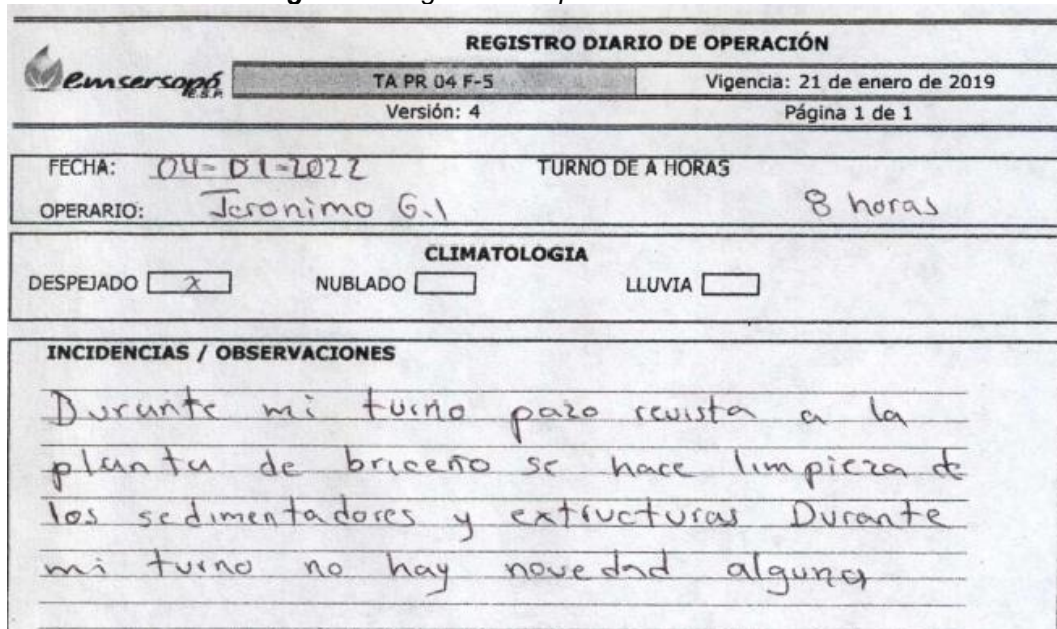 REGISTRO DIARIO DE OPERACIÓN
emsersopó
E.S.P.
TA PR 04 F-5
Vigencia: 21 de enero de 2019
Versión: 4
Página 1 de 1
FECHA: 04-01-2022
TURNO DE A HORAS
OPERARIO: Jeronimo G.
8 horas
CLIMATOLOGIA
DESPEJADO x NUBLADO LLUVIA
INCIDENCIAS / OBSERVACIONES
Durante mi turno pazo revista a la
planta de briceño se hace limpieza de
los sedimentadores y extructuras Durante
mi turno no hay novedad alguna